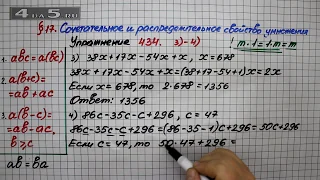 4 по 5.com
§17. Сочетательное и распределительное свойство умножения
Упражнение 434. 3)-4) m·1=1·m=m
1. abc=a(bc)
2. a(b+c)=
=ab+ac
3. a(b-c)=
=ab-ac,
b>c
ab=ba
3) 38x+17x-54x+x, x=678
38x+17x-54x+x=(38+17-54+1)x=2x
Если x=678, то 2·678=1356
Ответ: 1356
4) 86c-35c-c+296, c=47
86c-35c-c+296=(86-35-1)c+296=50c+296
Если c=47, то 50·47+296=